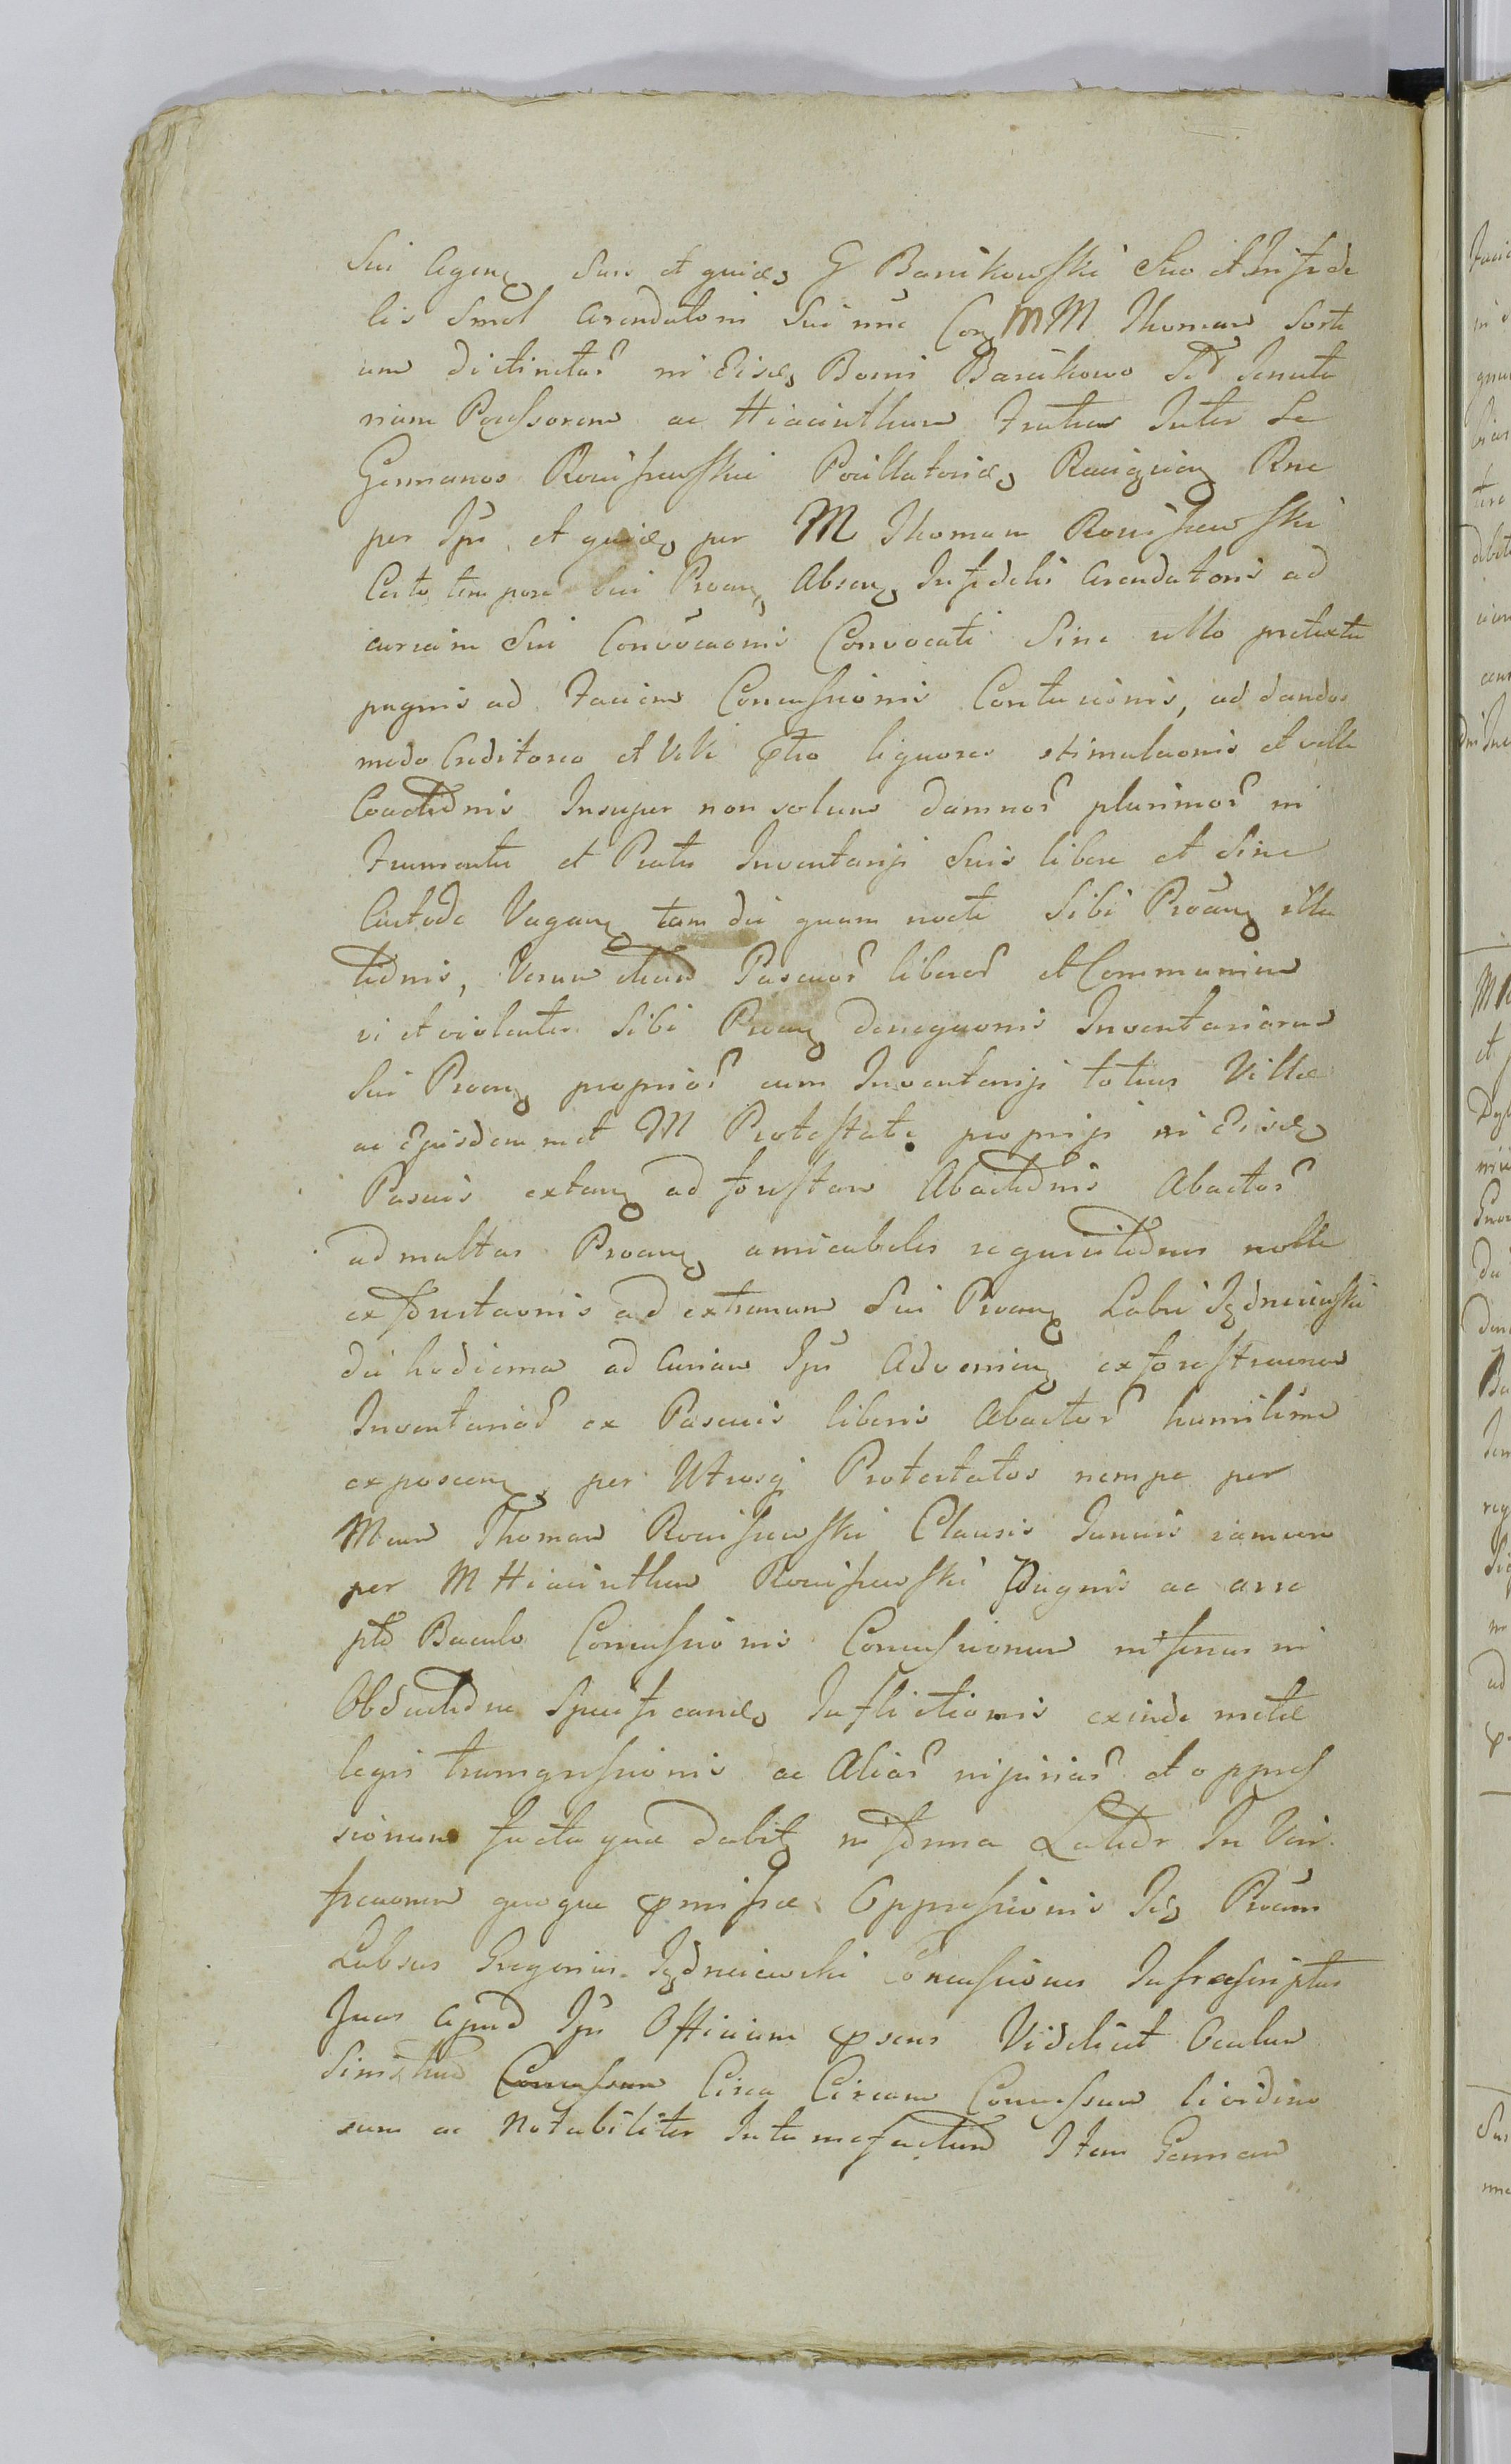 Sui Agen Suis et quidem G Barcikowski Suo et Infide
lis Simul Arendatoris Sui nunc Con MM Thomam Sorti
um distinctar in Eisd Bonis Barcikowo Std Tenuta
rium Possessorem ac Hiacinthum Fratres Inter Se
Germanos Rociszewskie Ratione
per Ipm et quidem per M Thomam Rociszewski
Certo tempore Sui Proan Absen Infidelis Arendatoris ad
curiam Sui Convocaonis Convocati Sine ullo pretextu
pugnis ad Faciem Concussionis Contusionis, ad dandos
modo Creditoreo et Veli ptio liquores stimulaonis et velle
Coactionis Insuper non solum damnor plurimor in
Frumentis et Pratis Inventarij Suis libere et Sine
Custode Vagan tam die quam nocte Sibi Proan illa
tionis, Verum etiam Pascuor liberor et Communium
vi et violenter Sibi Proan denegaonis Inventariorum
Sui Proan proprior cum Inventarijs totius Villæ
ac Ejusdem met M Protestati proprijs in Eisd
Pascuis extan ad forestam Abactionis Abactor
ad multas Proan amicabiles requisitiones nolle
exforestaonis ad extremum Sui Proan Labri Jędrzeiewski
die hodierna ad Curiam Ipi Advenien exforestraonem
Inventarior ex Pascuis liberis Abactor humilime
exposcen per Utrosq Protestatos nempe per
Mcum Thomam Rociszewski Clausis Januis eamera
per M Hiacinthum Rociszewski Pugnis ac arre
pto Baculo Concussionis Concussionum inferius in
Obductione Specificand Inflictionis exinde metæ
legis transgressionis ac Aliar injuriar et oppres
sionum facta quæ dabit in forma Lator In Veri
ficaonem quoque pmissæ Oppressionis Idem Proans
Labsus Gregorius Jędrzeiewski Concussiones Infrascriptas
Suas Apud Ips Officium psens Videlicet Oculum
Sinistrum Concussum Circa Circum Concussum lividino
sum ac Notabiliter Intumefactum Item Gennam